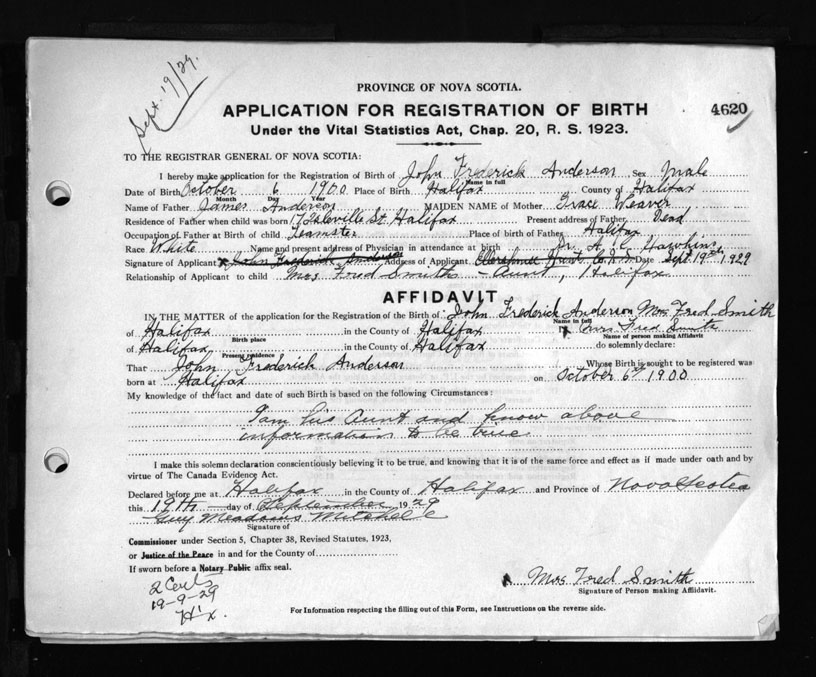 Sept. 19/29.
PROVINCE OF NOVA SCOTIA.
APPLICATION FOR REGISTRATION OF BIRTH
4620
Under the Vital Statistics Act, Chap. 20, R. S. 1923.
TO THE REGISTRAR GENERAL OF NOVA SCOTIA:
I hereby make application for the Registration of Birth of John Frederick Anderson Sex Male
Name in full
Date of Birth October 6 1900 Place of Birth Halifax County of Halifax
Month Day Year
Name of Father James Anderson MAIDEN NAME of Mother Grace Weaver
Residence of Father when child was born 17 St. Halifax Present address of Father Dead
Occupation of Father at Birth of child Teamster Place of birth of Father Halifax
Race White Name and present address of Physician in attendance at birth Dr. A. C. Hawkins
Signature of Applicant x John Frederick Anderson Address of Applicant Date Sept. 19th, 1929
Relationship of Applicant to child Mrs Fred Smith - Aunt, Halifax
AFFIDAVIT
IN THE MATTER of the application for the Registration of the Birth of: John Frederick Anderson Mrs Fred Smith
Name in full
of Halifax in the County of Halifax I, Mrs Fred Smith
Birth place Name of person making Affidavit
of Halifax, in the County of Halifax do solemnly declare:
Present residence
That John Frederick Anderson Whose Birth is sought to be registered was
born at Halifax on October 6th 1900
My knowledge of the fact and date of such Birth is based on the following Circumstances:
I am his Aunt and know above
information to be true
I make this solemn declaration conscientiously believing it to be true, and knowing that it is of the same force and effect as if made under oath and by
virtue of The Canada Evidence Act.
Declared before me at Halifax in the County of Halifax and Province of Nova Scotia
this 19th day of September 1929
Guy Meadows Mitchell
Signature of
Commissioner under Section 5, Chapter 38, Revised Statutes, 1923,
or Justice of the Peace in and for the County of
If sworn before a Notary Public affix seal.
2 Certs
19-9-29
H'x.
x Mrs Fred Smith
Signature of Person making Affidavit.
For Information respecting the filling out of this Form, see Instructions on the reverse side.